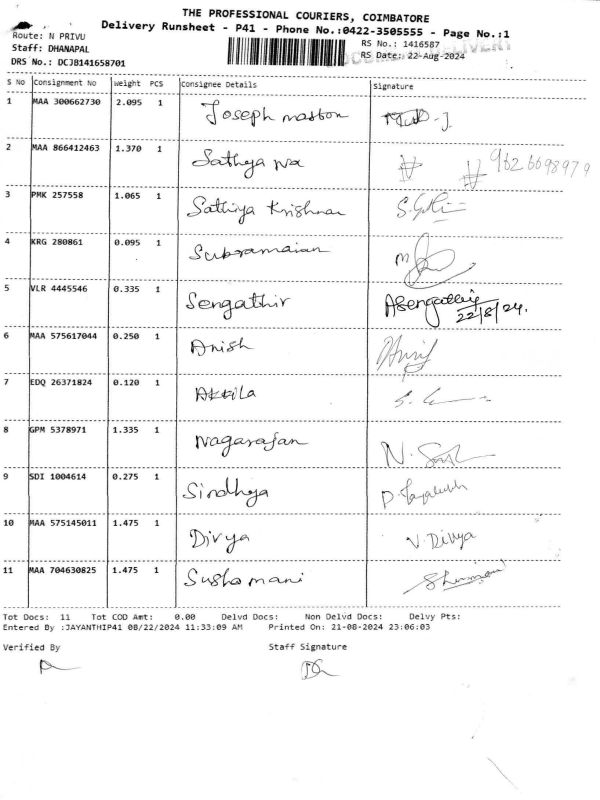 THE PROFESSIONAL COURIERS, COIMBATORE
Delivery Runsheet - P41 - Phone No.:0422-3505555 - Page No.:1
Route: N PRIVU
Staff: DHANAPAL
DRS No.: DCJ8141658701
RS No.: 1416587
RS Date: 22-Aug-2024
S No Consignment No Weight PCS Consignee Details Signature
1 MAA 300662730 2.095 1 Joseph maston
2 MAA 866412463 1.370 1 Sathya 9626698979
3 PMK 257558 1.065 1 Sathiya Krishnan
4 KRG 280861 0.095 1 Subramaian
5 VLR 4445546 0.335 1 Sengathir ASengathir
22/8/24.
6 MAA 575617044 0.250 1 Anish
7 EDQ 26371824 0.120 1 Akkila
8 GPM 5378971 1.335 1 Nagarajan
9 SDI 1004614 0.275 1 Sindhya
10 MAA 575145011 1.475 1 Divya V. Divya
11 MAA 704630825 1.475 1 Sushamani
Tot Docs: 11 Tot COD Amt: 0.00 Delvd Docs: Non Delvd Docs: Delvy Pts:
Entered By :JAYANTHIP41 08/22/2024 11:33:09 AM Printed On: 21-08-2024 23:06:03
Verified By Staff Signature